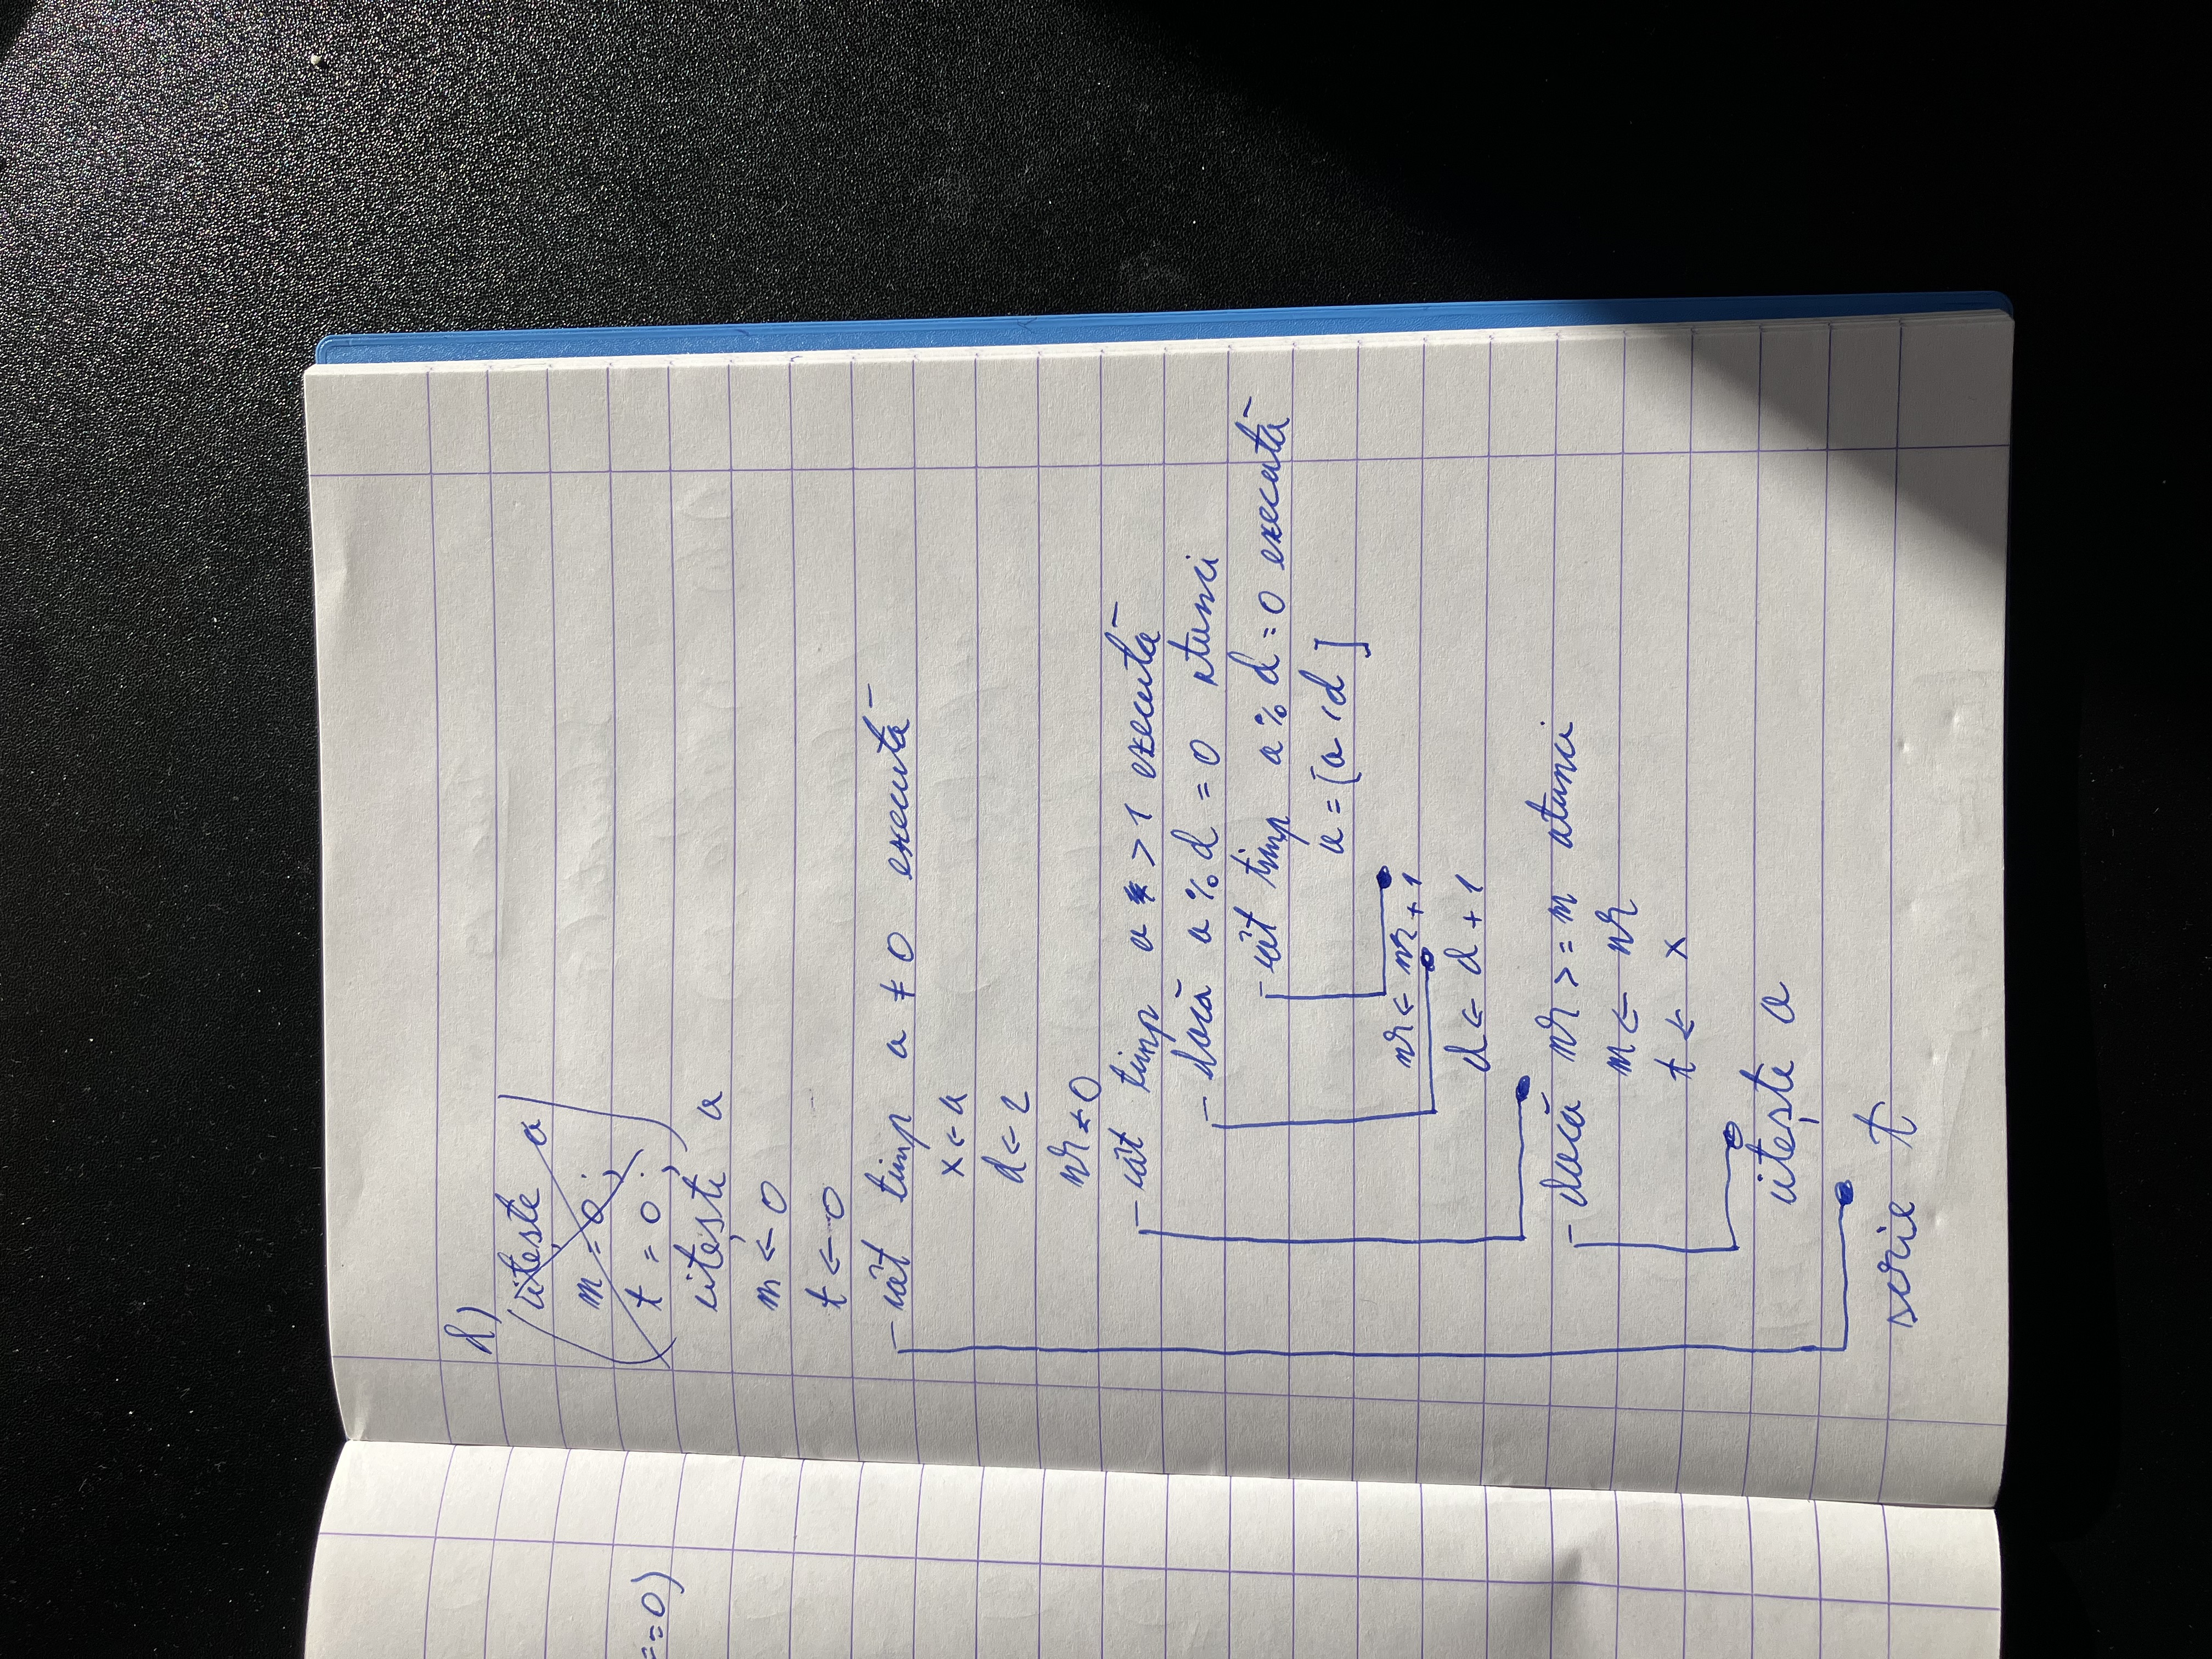 ==0)
d)
citește a
m = 0;
t = 0;
citește a
m ← 0
t ← 0
cât timp a ≠ 0 execută
x ← a
d ← 2
nr ← 0
cât timp a > 1 execută
dacă a % d = 0 atunci
cât timp a % d = 0 execută
a = [a / d]
nr ← nr + 1
d ← d + 1
dacă nr >= m atunci
m ← nr
t ← x
citește a
scrie t